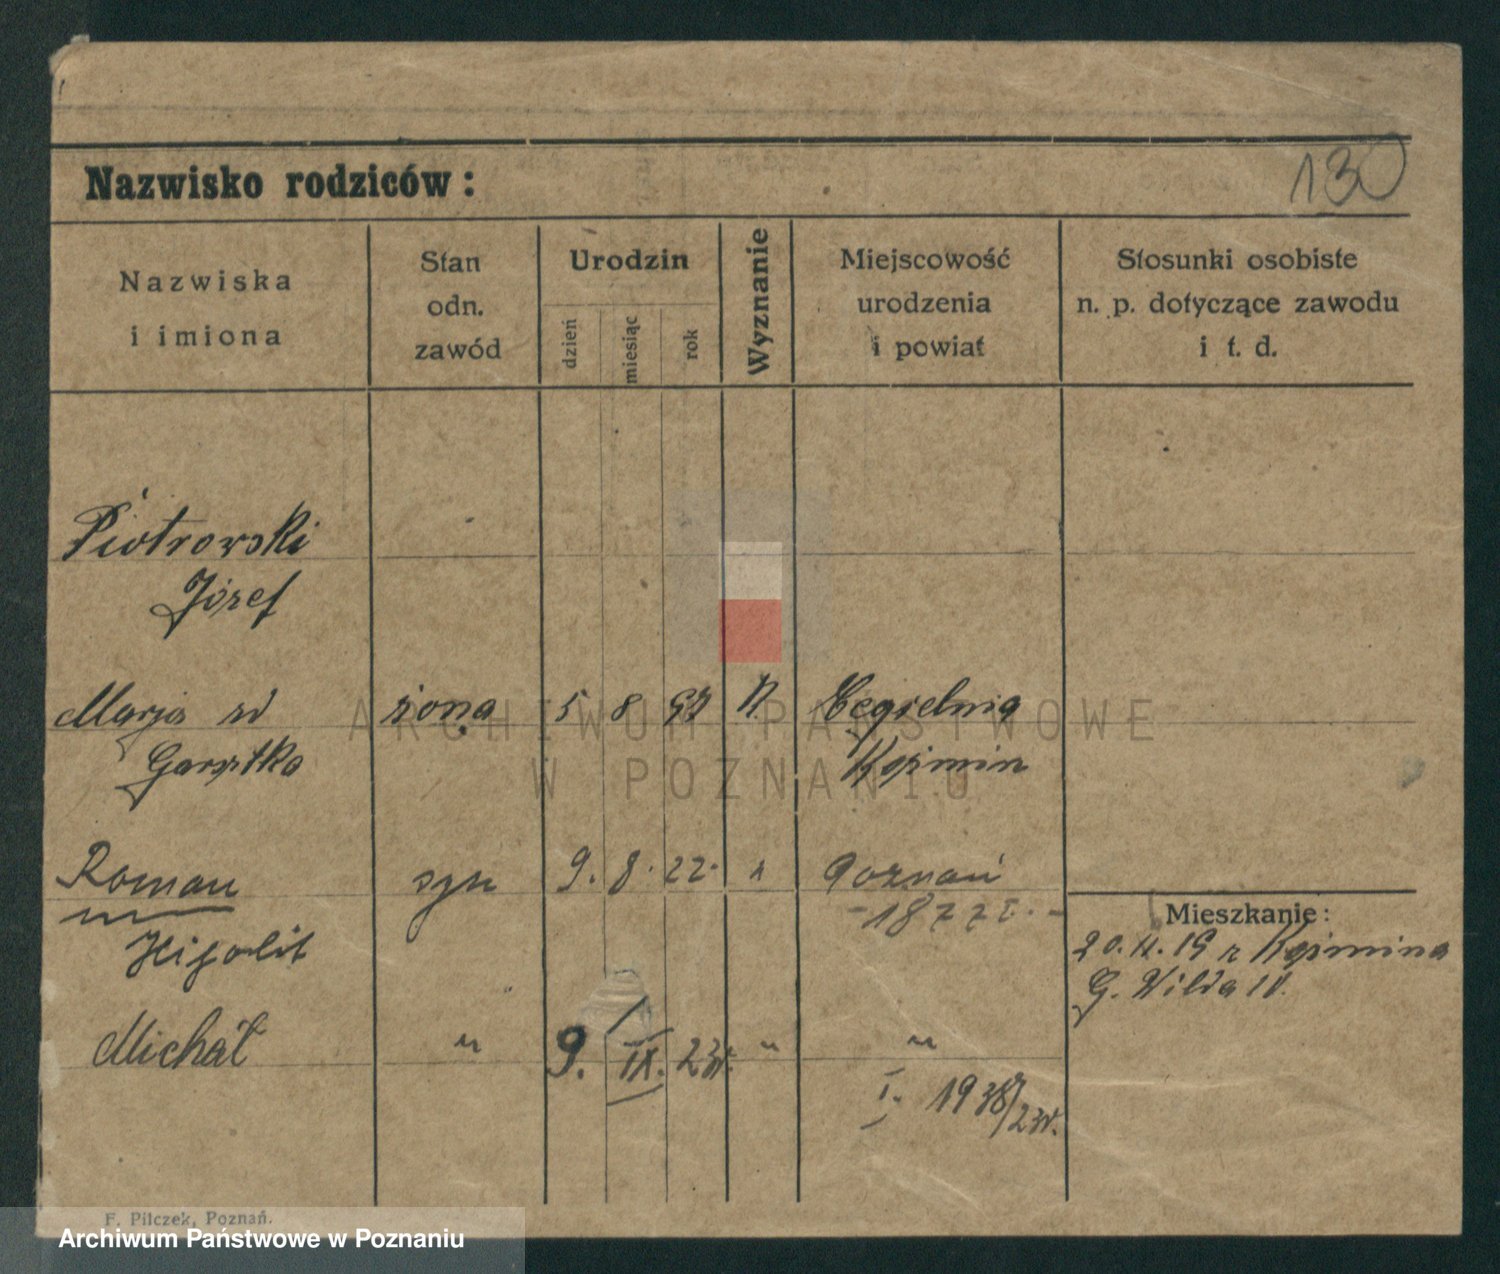 130
Nazwisko rodziców:
Nazwiska
i imiona
Stan
odn.
zawód
Urodzin
dzień
miesiąc
rok
Wyznanie
Miejscowość
urodzenia
i powiat
Stosunki osobiste
n. p. dotyczące zawodu
i t. d.
Piotrowski
Józef
Marja zd żona 5 8 97 Cegielnia
Koźmin
Roman syn 9. 8. 22. Poznań
Hipolit
Michał " 9. IX. 23r. " "
I. 1938/23r.
Mieszkanie:
20. 11. 19 z Koźmina
G. Wilda
ARCHIWUM PAŃSTWOWE
W POZNANIU
F. Pilczek, Poznań.
Archiwum Państwowe w Poznaniu